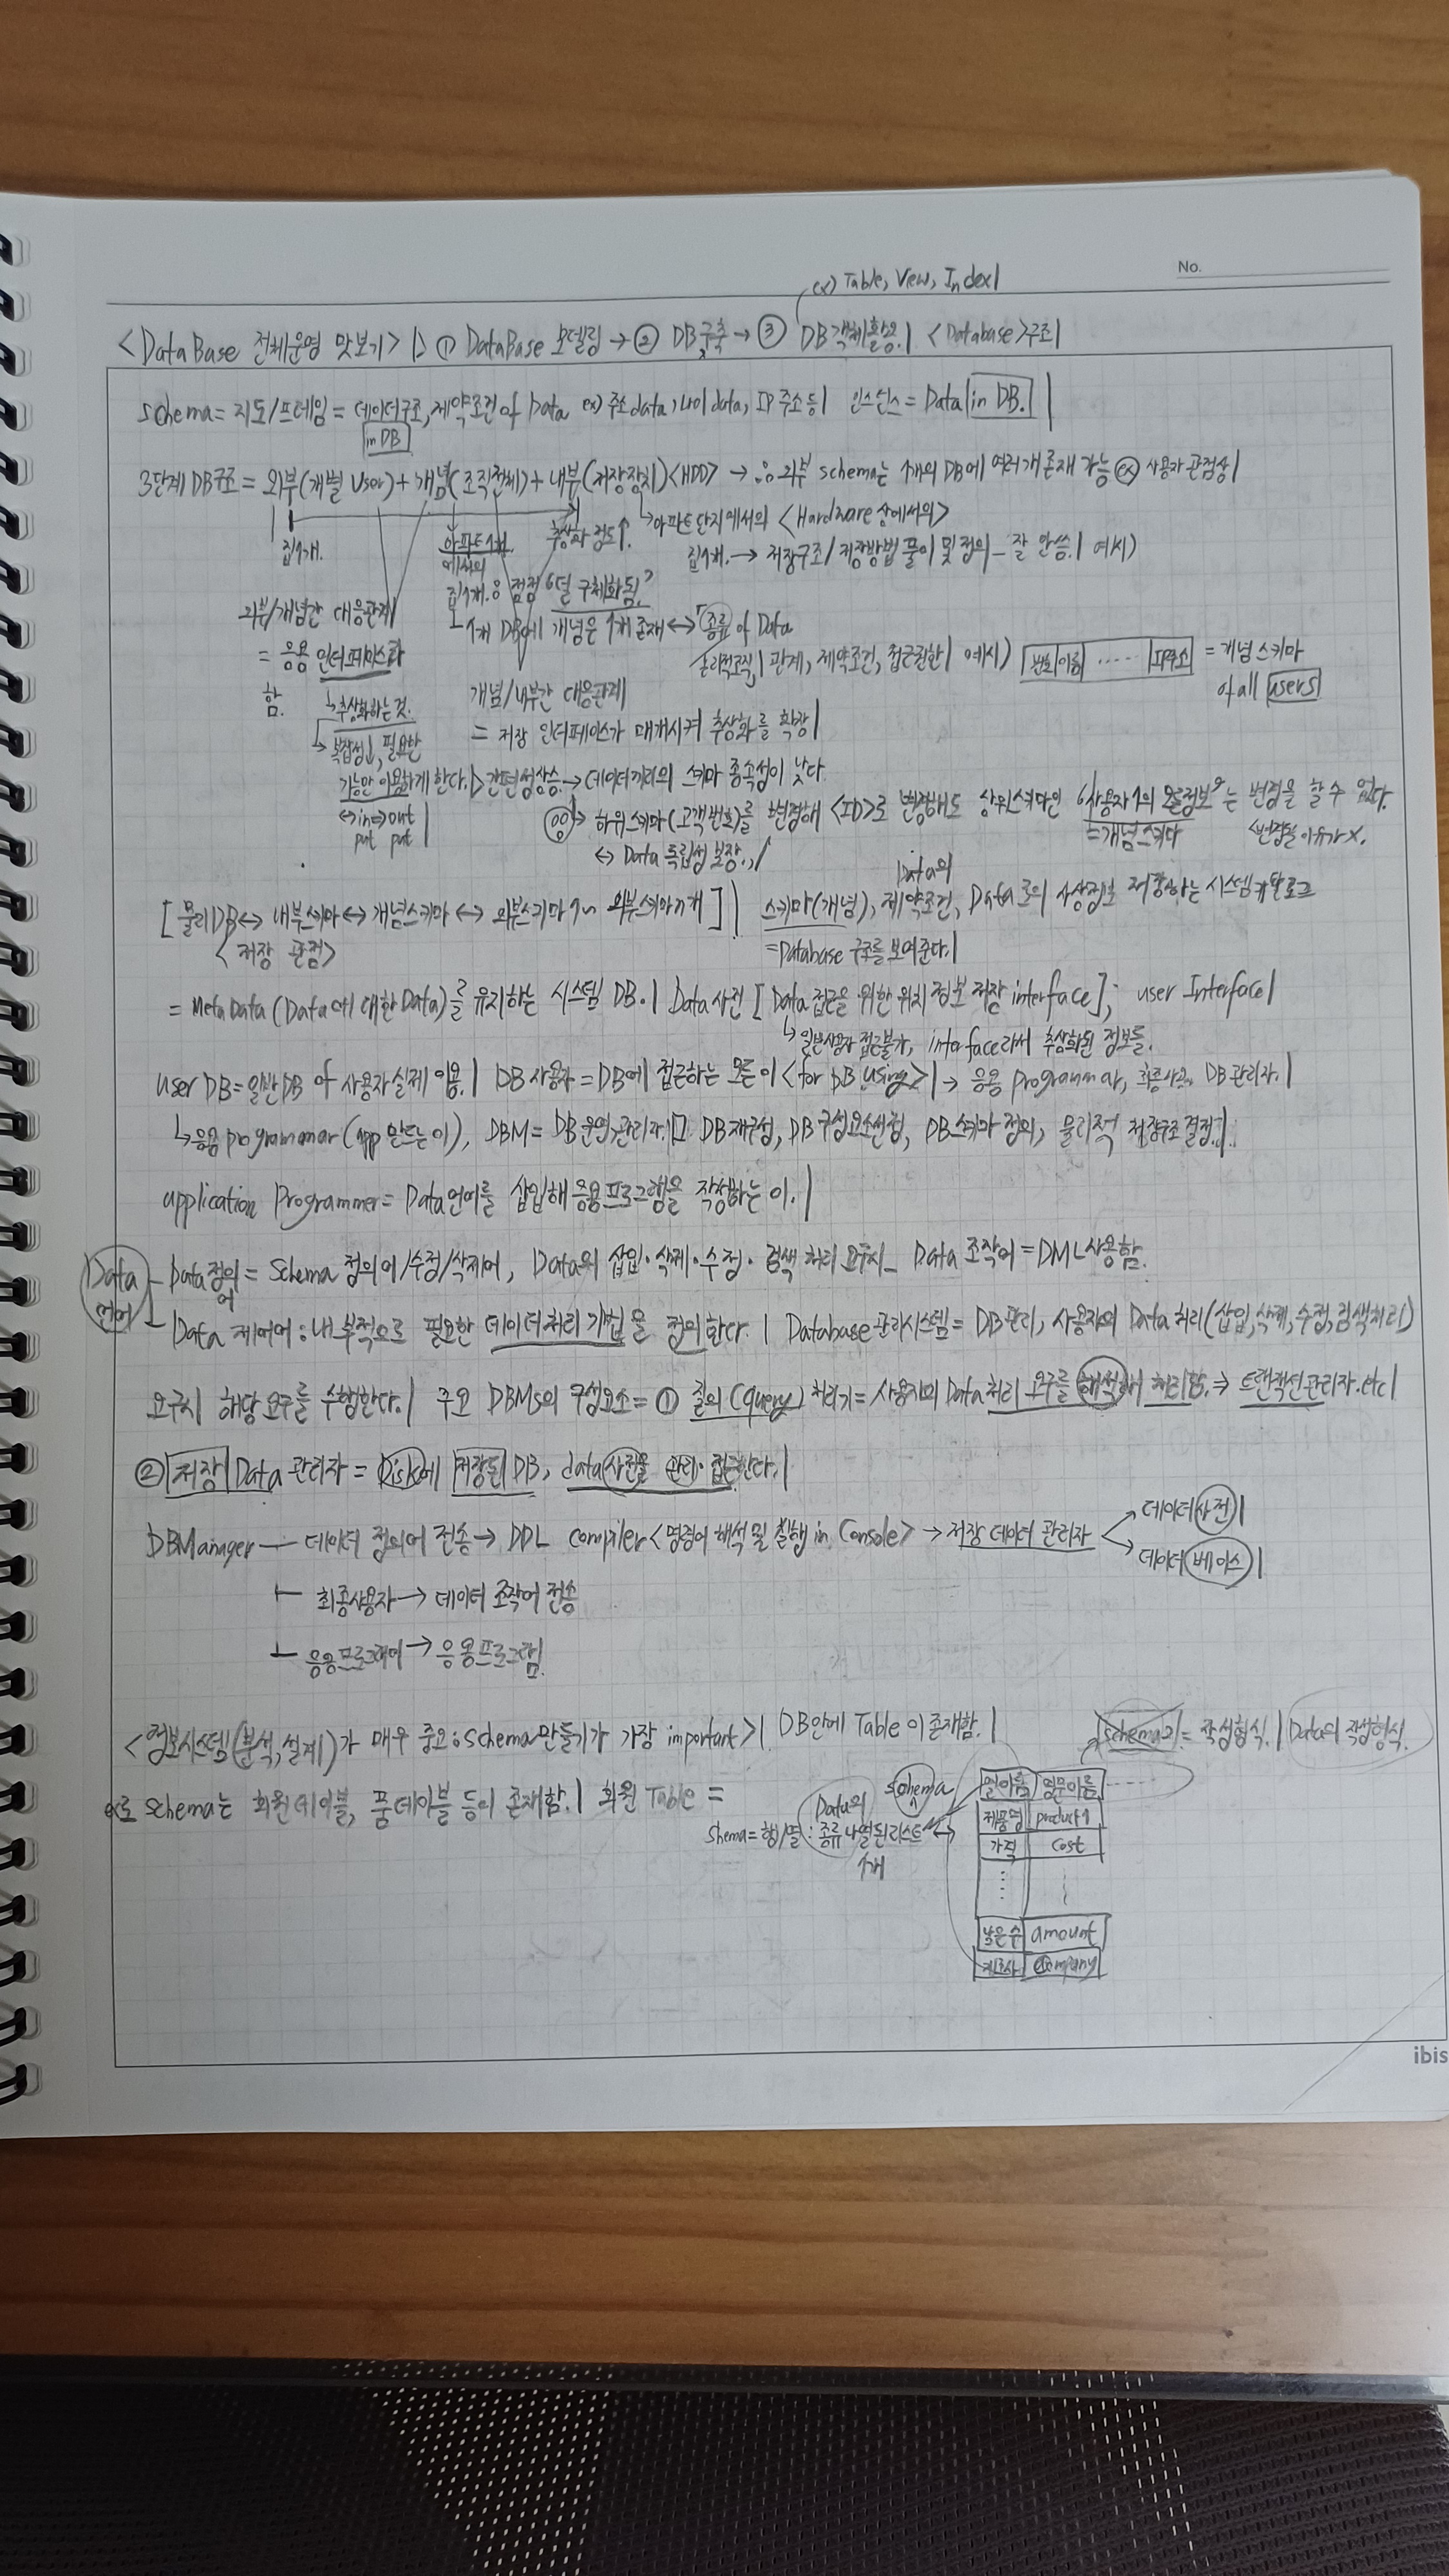 No.
ex) Table, View, Index|
<DataBase 전체운영 맛보기> |> ① DataBase 모델링 → ② DB구축 → ③ DB객체활용.| <Database>구조|
schema = 지도/프레임 = 데이터구조, 제약조건 of Data ex) 주소data, 나이data, IP주소 등| 인스턴스 = Data in DB.|
in DB
3단계 DB구조 = 외부(개별 User) + 개념(조직전체) + 내부(저장장치)<HDD> → ∴ 외부 schema는 1개의 DB에 여러개 존재 가능 ex) 사용자 관점상|
집1개. 아파트1개에서의 집1개. 추상화 정도↑. 아파트 단지에서의 <Hardware 상에서의>
집1개. → 저장구조/저장방법 풀이 및 정의_ 잘 안씀.| 예시)
: 점점 "덜 구체화됨"
외부/개념간 대응관계| 1개 DB에 개념은 1개 존재 ↔ 종류 of Data
= 응용 인터페이스라 함. 관계, 제약조건, 접근권한| 예시) 번호 이름 ..... IP주소 = 개념스키마
of all users
↳ 추상화하는 것. 개념/내부간 대응관계|
→ 복잡성↓, 필요한 = 저장 인터페이스가 매개시켜 추상화를 확장|
기능만 이용하게 한다. ▷ 간편성상승 → 데이터끼리의 스키마 종속성이 낮다.
↔ in put ⇒ out put| 하위스키마(고객번호)를 변경해 <ID>로 변경해도 상위스키마인 "사용자1의 모든정보"는 변경을 할 수 없다.
=개념스키마 <변경될 이유가 X.
↔ Data 독립성 보장.,|
[물리DB ↔ 내부스키마 ↔ 개념스키마 ↔ 외부스키마1~ 외부스키마n개]| 스키마(개념), Data의 제약조건, Data로의 사상정보 저장하는 시스템 카탈로그
<저장 관점> =Database 구조를 보여준다.|
= Meta Data(Data에 대한 Data)를 유지하는 시스템 DB.| Data사전 [Data접근을 위한 위치 정보 저장 interface]; user Interface|
↳ 일반사용자 접근불가, interface라서 추상화된 정보들.
user DB = 일반DB of 사용자 실제 이용.| DB사용자 = DB에 접근하는 모든 이<for DB using>| → 응용 programmar, DB관리자.|
↳ 응용 programmar(app 만드는 이), DBM = DB운영관리자. DB재구성, DB구성요소선정, DB스키마 정의, 물리적 저장구조 결정.|
application Programmer = Data언어를 삽입해 응용프로그램을 작성하는 이.|
Data언어 Data정의어 = Schema 정의어/수정/삭제어, Data의 삽입·삭제·수정·검색 처리 요구시_ Data 조작어 = DML사용함.
Data 제어어 : 내부적으로 필요한 데이터처리 기법을 정의한다.| Database관리시스템 = DB관리, 사용자의 Data처리(삽입,삭제,수정,검색처리)
요구시 해당 요구를 수행한다.| 주요 DBMS의 구성요소 = ① 질의(query) 처리기 = 사용자의 Data처리 요구를 해석해서 처리함. ⇒ 트랜잭션관리자.etc|
② 저장 Data 관리자 = Disk에 저장된 DB, data사전을 관리·접근한다.|
DBManager — 데이터 정의어 전송 → DDL compiler<명령어 해석 및 실행 in Console> → 저장 데이터 관리자 데이터사전|
데이터베이스|
최종사용자 → 데이터 조작어 전송
응용프로그래머 → 응용프로그램
<정보시스템(분석,설계)가 매우 중요: schema만들기가 가장 important>| DB안에 Table이 존재함.| = 작성형식.| Data의 작성형식.
ex로 schema는 회원테이블, 품테이블 등이 존재함.| 회원 Table =
schema
shema = 행/열 : Data의 종류 나열된 리스트 1개
열이름 영문이름
제품명 product1
가격 cost
남은수 amount
제조사 company
ibis